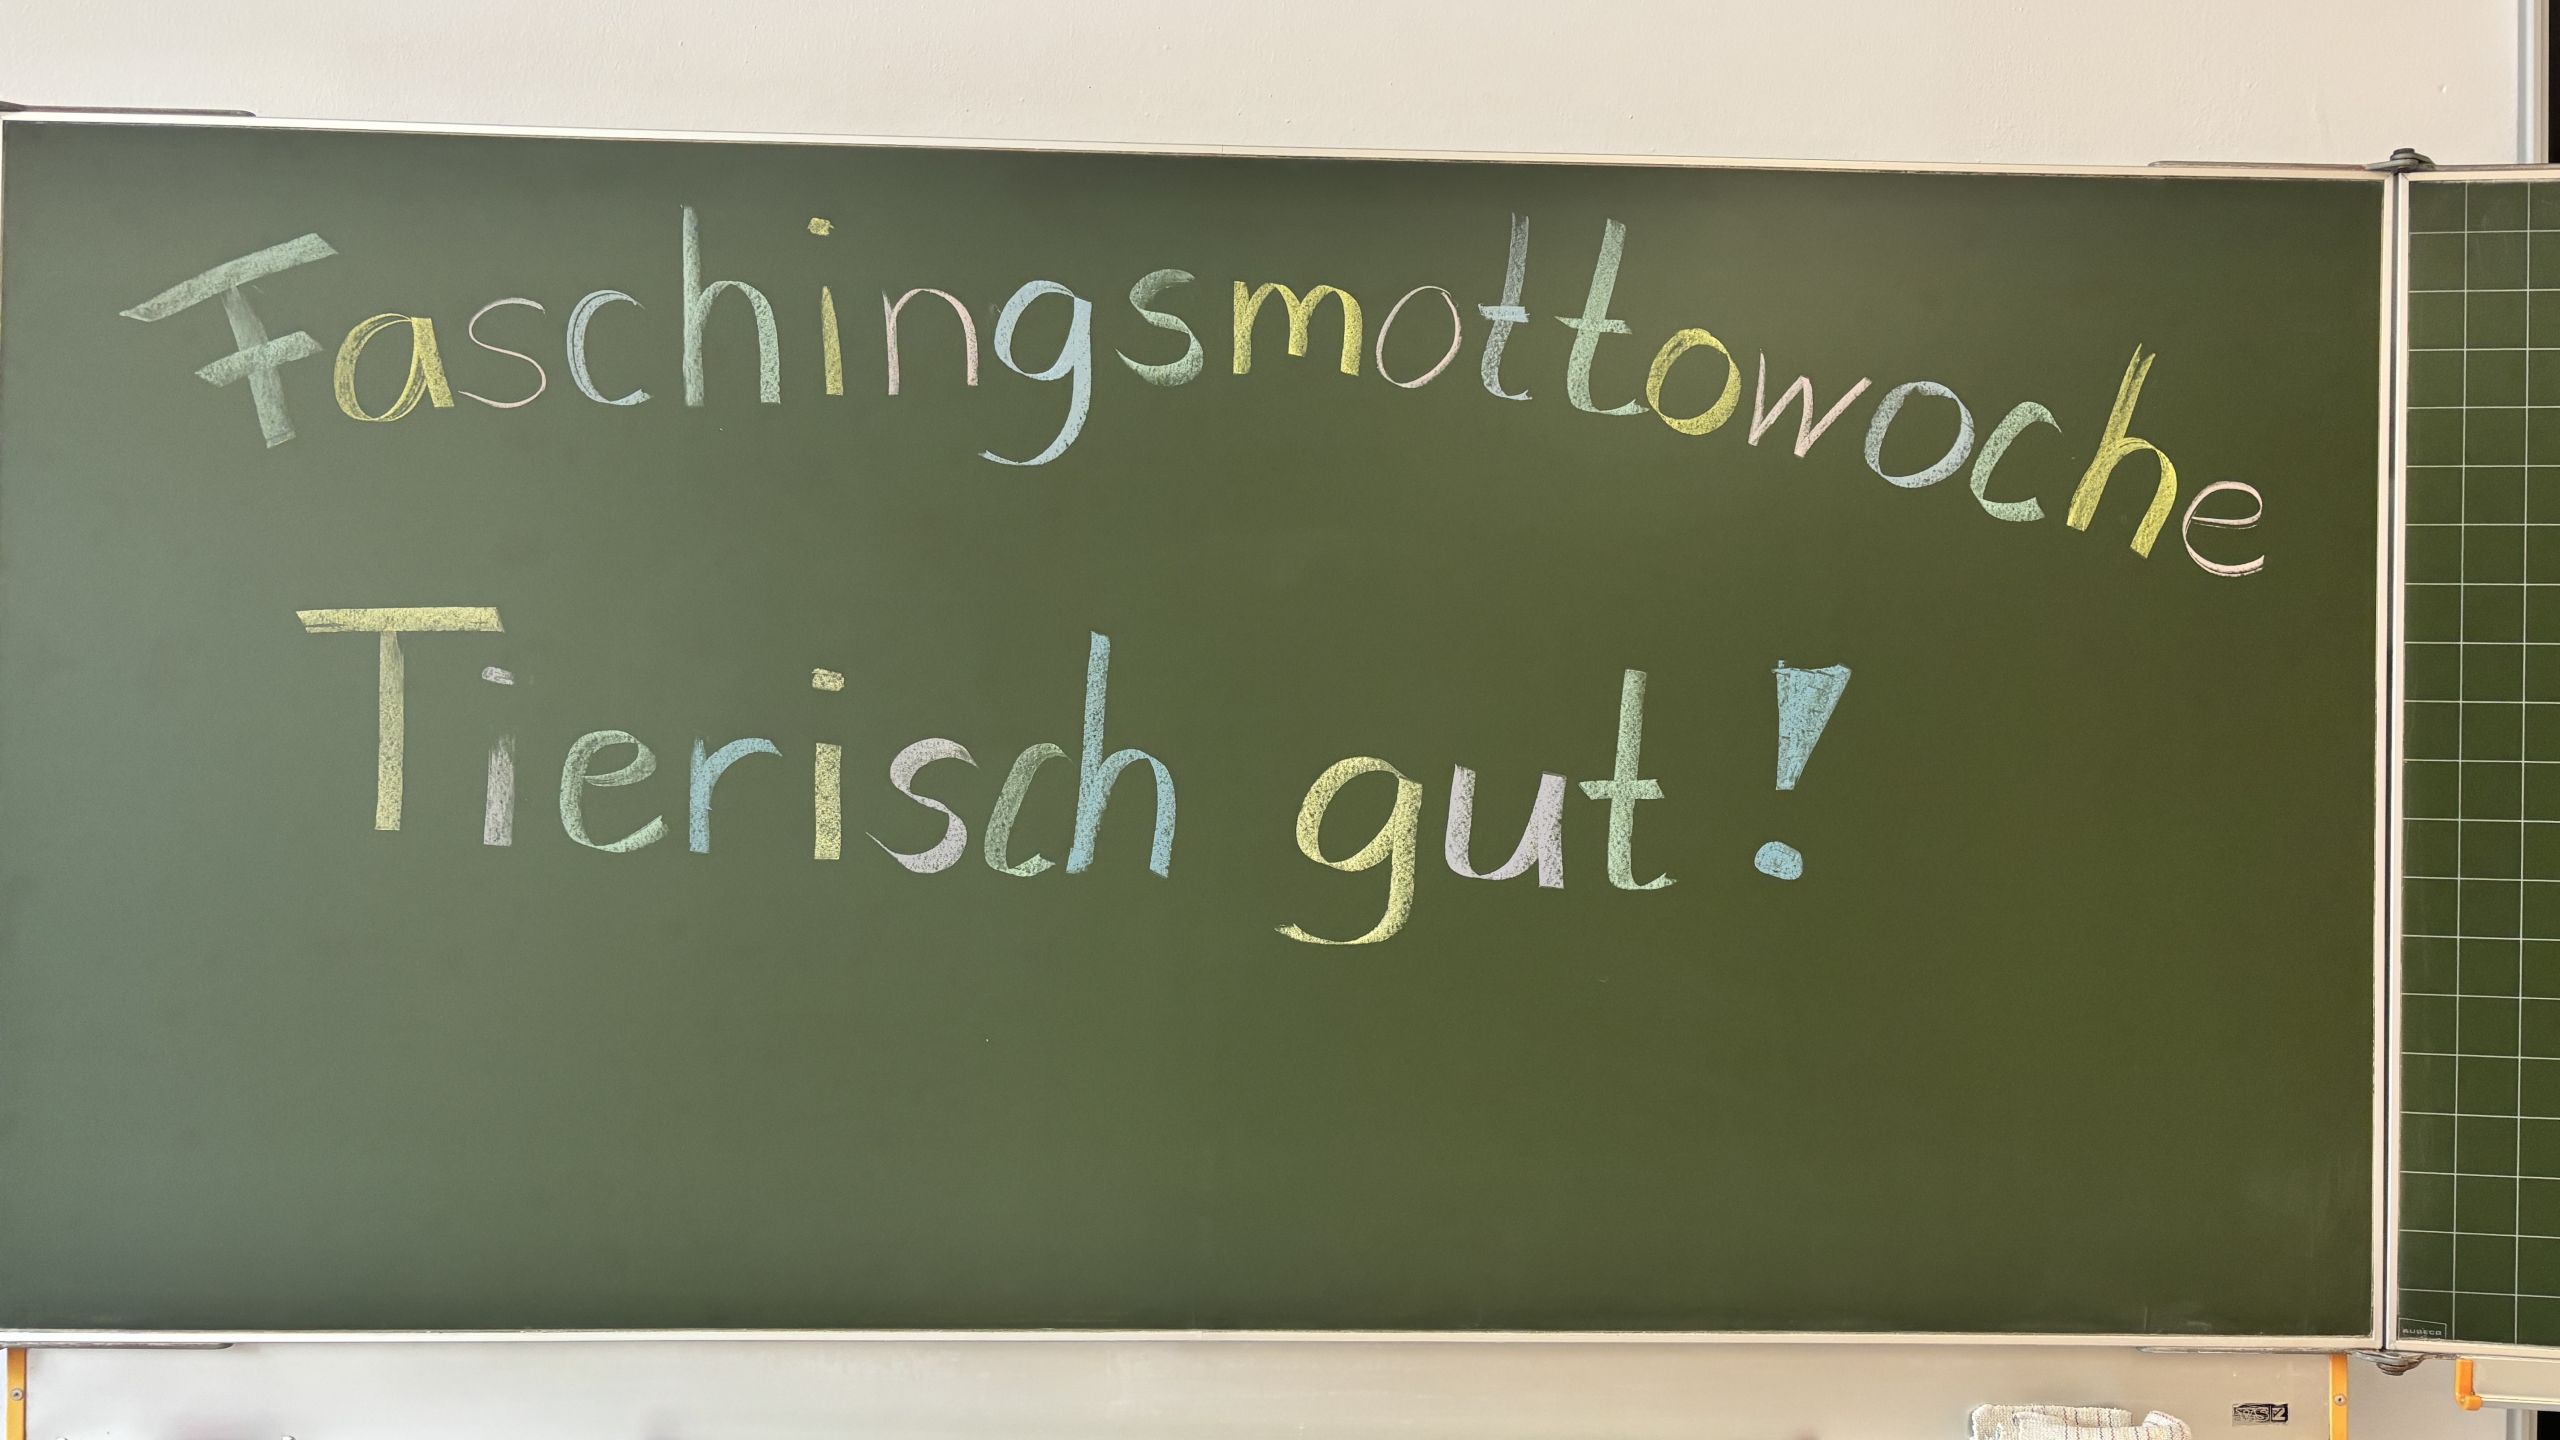 Faschingsmottowoche
Tierisch gut!